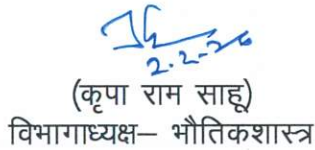 2.2-26
(कृपा राम साहू)
विभागाध्यक्ष– भौतिकशास्त्र